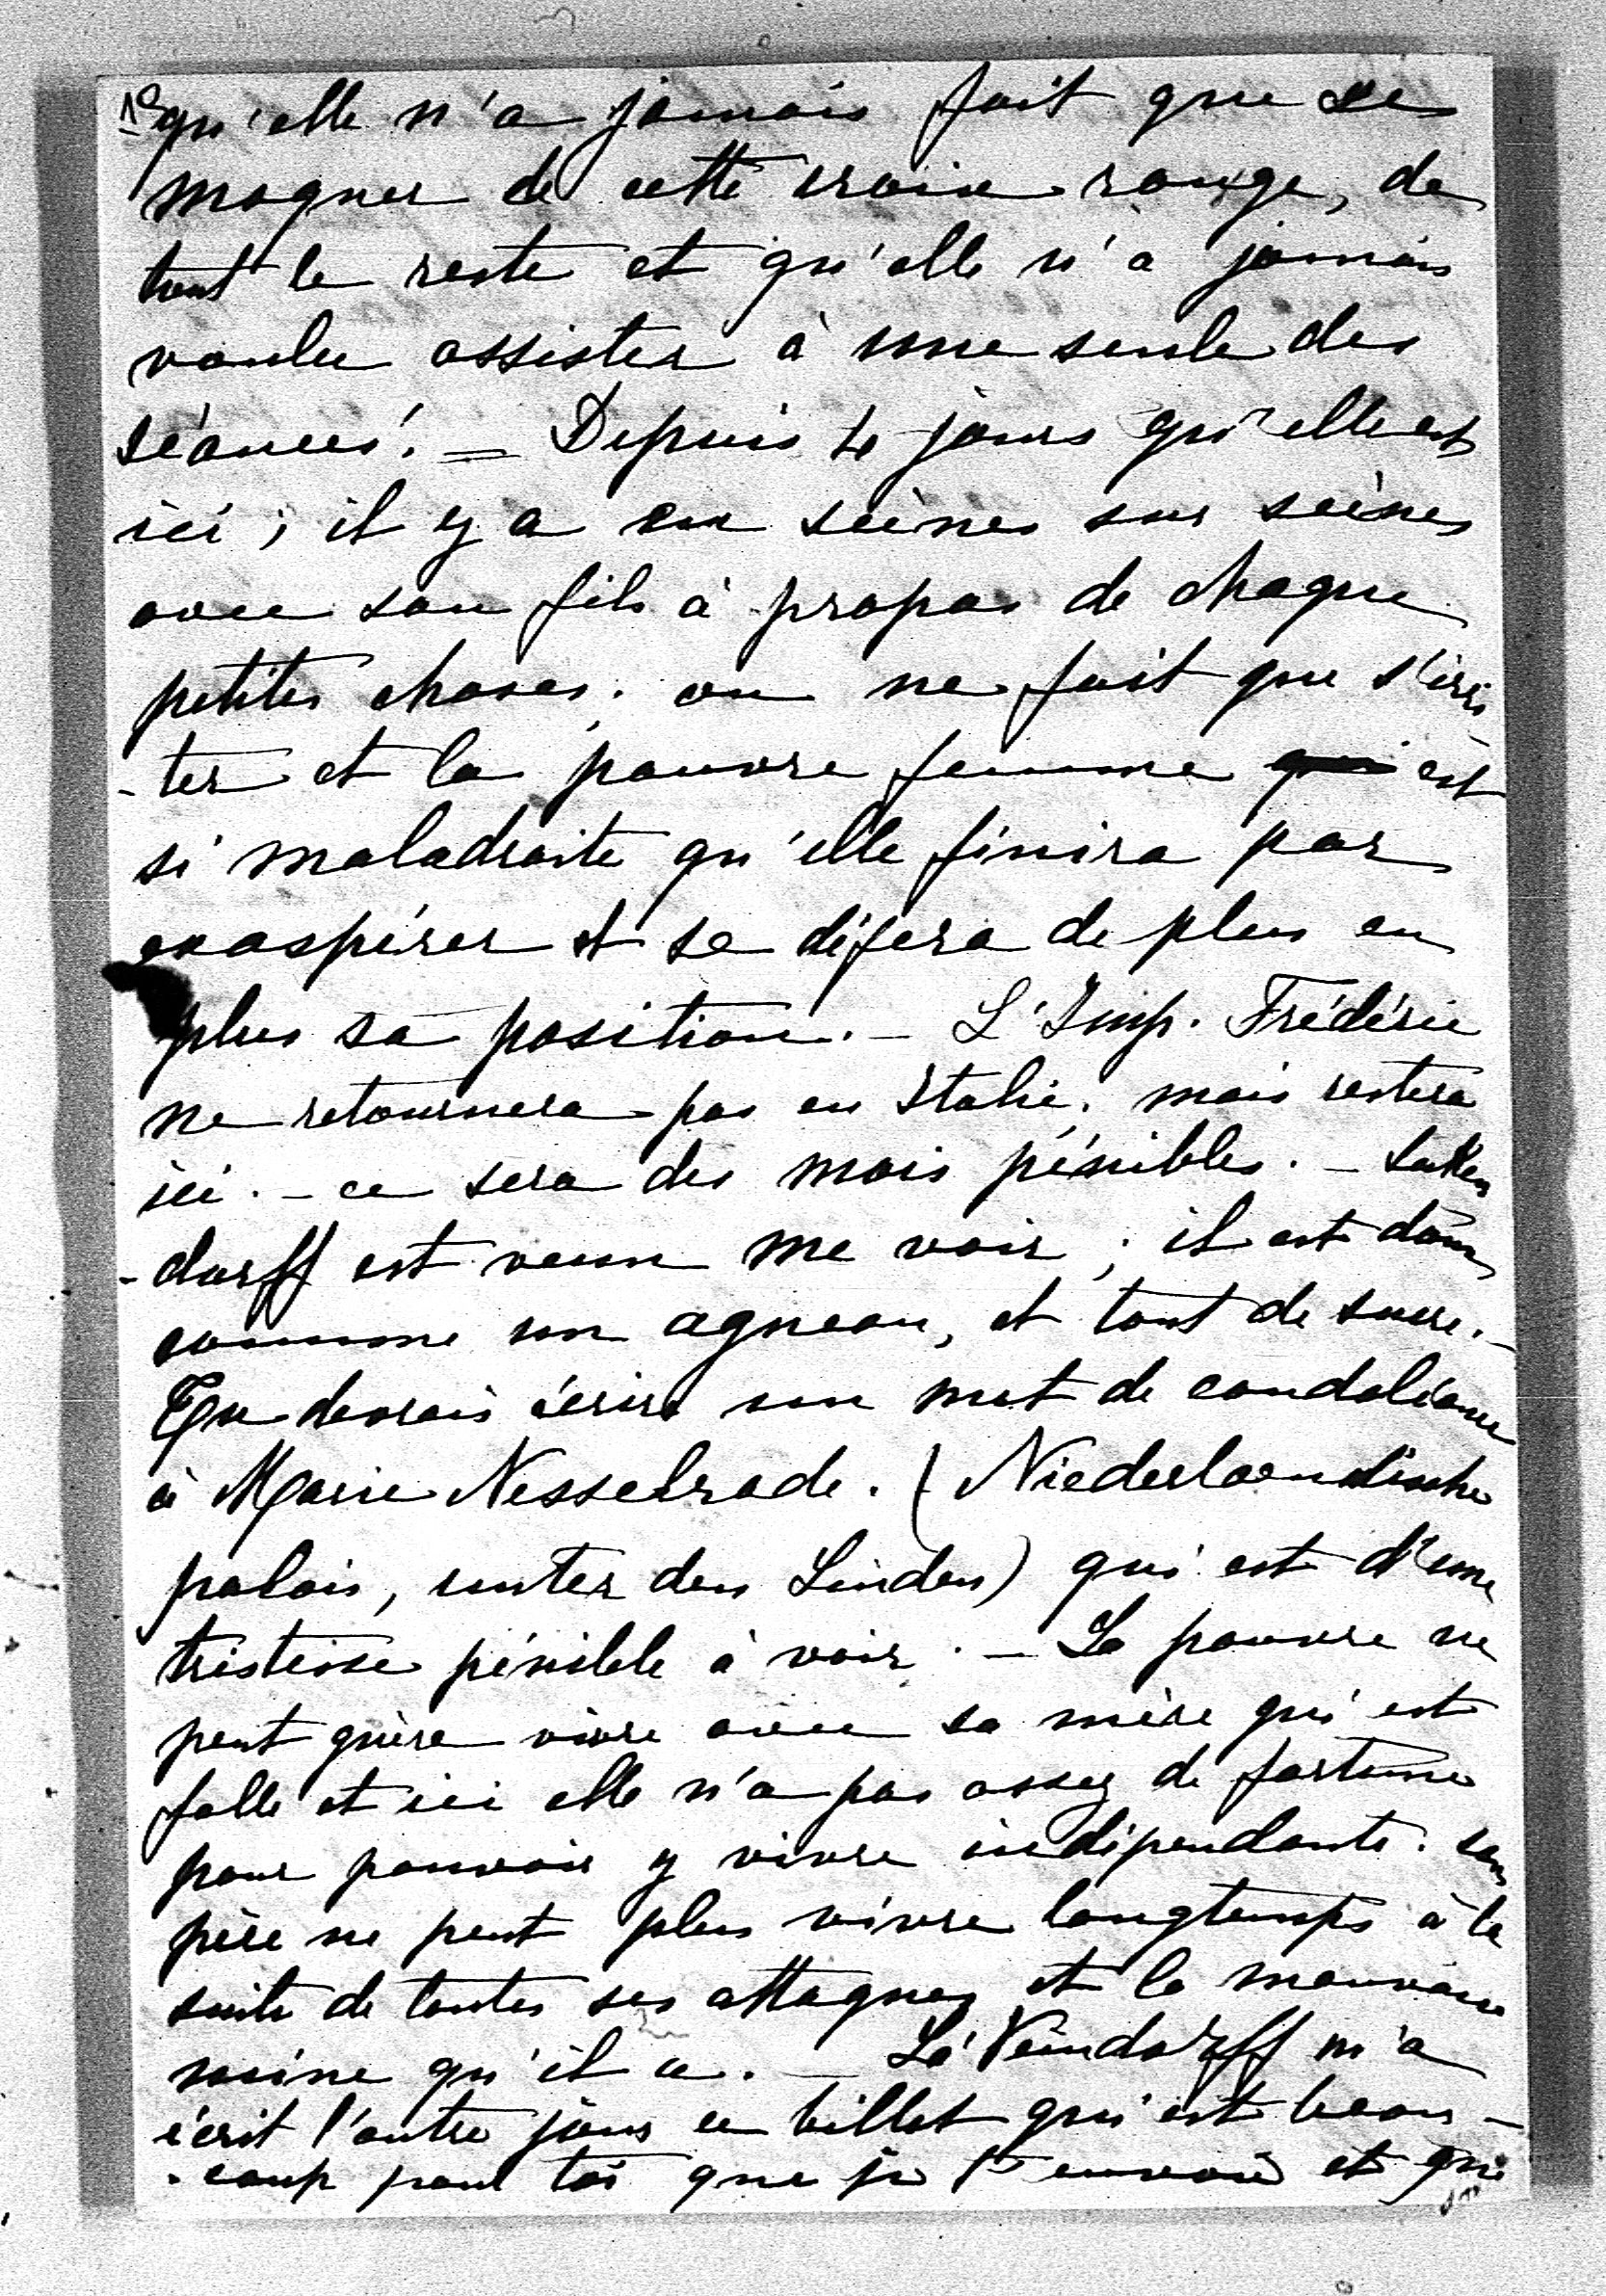 qu'elle n'a jamais fait que se
moquer de cette croix rouge, de
tout le reste et qu'elle n'a jamais
voulu assister à une seule des
séances! — Depuis 4 jours qu'elle est
ici; il y a eu scènes sur scènes
avec son fils à propos de chaque
petites choses. on ne fait que s'irri
-ter et la pauvre femme est
si maladroite qu'elle finira par
exaspérer et se défera de plus en
plus sa position. — L'Imp. Frédéric
ne retournera pas en Italie, mais restera
ici. — ce sera des mois pénibles. —
-dorff est venu me voir; il est doux
comme un agneau, et tout de sucre. —
Tu devrais écrire un mot de condoléance
à Marie Nesselrode. (Niederlaendische
palais, unter den Linden) qui est d'une
tristesse pénible à voir. — La pauvre ne
peut guère vivre avec sa mère qui est
folle et ici elle n'a pas assez de fortune
pour pouvoir y vivre indépendante. son
père ne peut plus vivre longtemps à la
suite de toutes ses attaques et la mauvaise
mine qu'il a. — La m'a
écrit l'autre jour ce billet qui est beau-
-coup pour toi que je t'envoie et qui